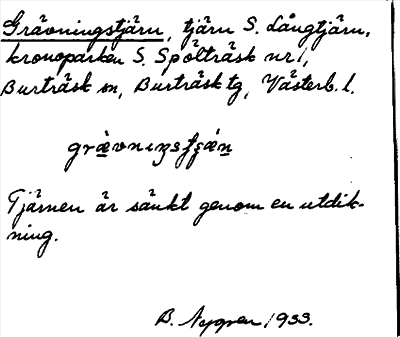 Grävningstjärn, tjärn S. Långtjärn,
kronoparken S. Spölträsk nr 1,
Burträsk sn, Burträsk tg, Västerb. l.
grävnıŋstjän
Tjärnen är sänkt genom en utdik-
ning.
B. Nygren 1933.